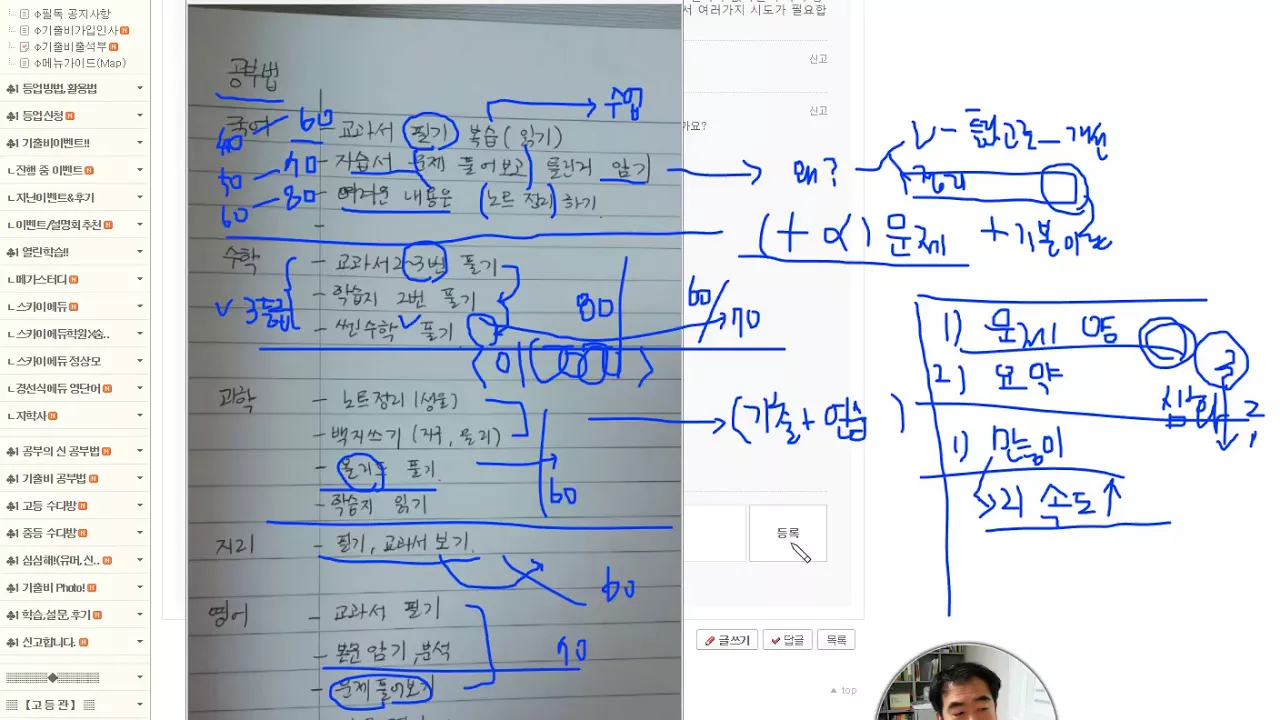 Φ필독 공지사항
Φ기출비가입인사
Φ기출비출석부
Φ메뉴가이드(Map)
♣1 등업방법,활용법
♣1 등업신청
♣1 기출비이벤트!!
ㄴ진행 중 이벤트
ㄴ지난이벤트&후기
ㄴ이벤트/설명회 추천
♣1 열린학습!!
ㄴ메가스터디
ㄴ스카이에듀
ㄴ스카이에듀학원X송..
ㄴ스카이에듀 정상모
ㄴ경선식에듀 영단어
ㄴ지학사
♣1 공부의 신 공부법
♣1 기출비 공부법
♣1 고등 수다방
♣1 중등 수다방
♣1 심심해!(유머,신..
♣1 기출비 Photo!
♣1 학습,설문,후기
♣1 신고합니다.
【고등 관】
서 여러가지 시도가 필요합
신고
신고
가요?
등록
글쓰기 답글 목록
▲ top
공부법
국어
- 교과서 필기 복습 (읽기)
- 자습서 문제 풀어보고 틀린거 암기
- 어려운 내용은 노트 정리 하기
-
수학
- 교과서 2-3번 풀기
- 학습지 2번 풀기
- 쎈수학 풀기
과학
- 노트정리 (생물)
- 백지쓰기 (지구, 물리)
- 올리드 풀기
- 학습지 읽기
지리
- 필기, 교과서 보기.
영어
- 교과서 필기
- 본문 암기, 분석
- 문제 풀어보기
수업
40 60
50 70
60 80
왜?
(+α) 문제 +기본
3등급
80
60/70
(기출+연습)
60
60
70
1) 문제
2) 요약
심화
2
1
1)
2) 속도↑